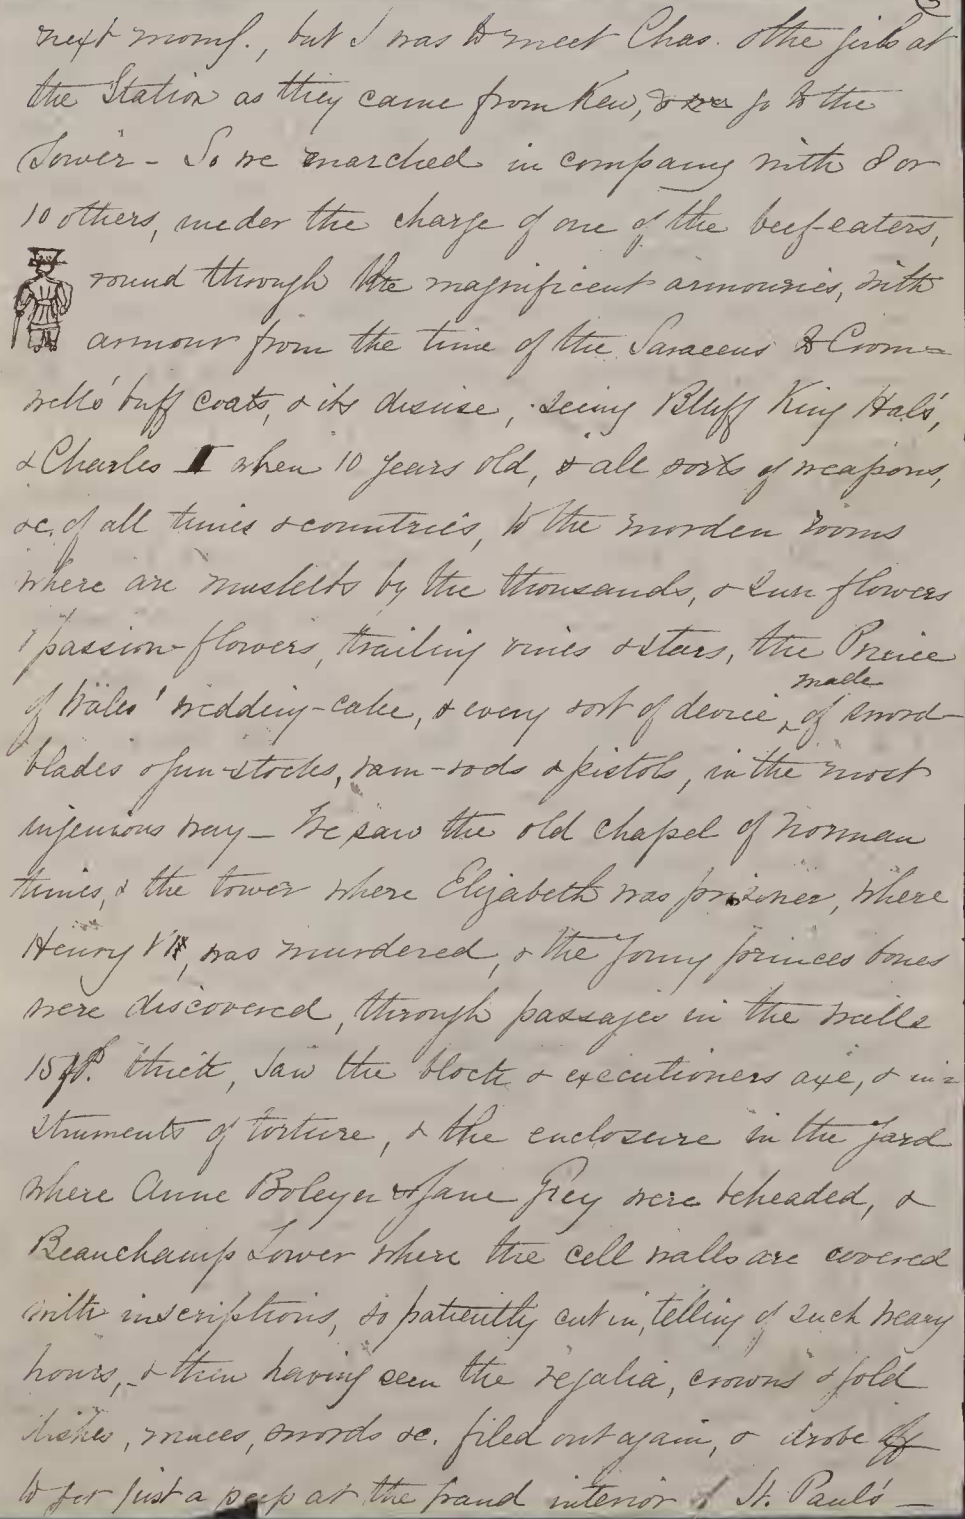 next morng., but I was to meet Chas. & the girls at
the Station as they came from Kew, & we go to the
Tower - So we marched in company with 8 or
10 others, under the charge of one of the beef-eaters,
round through the magnificent armouries, with
armour from the time of the Saracens to Crom=
wells' buff coats, & its disuse, seeing Bluff King Hal's,
& Charles I when 10 years old, & all sorts of weapons,
&c. of all times & countries, to the morden rooms
where are muskets by the thousands, & sun flowers
& passion-flowers, trailing vines & stars, the Prince
of Wales' wedding-cake, & every sort of device, made of sword-
blades & gun-stocks, ram-rods & pistols, in the most
ingenious way - We saw the old chapel of Norman
times, & the tower where Elizabeth was prisoner, where
Henry VI, was murdered, & the young princes bones
were discovered, through passages in the walls
15 ft. thick, saw the block & executioners axe, & in=
struments of torture, & the enclosure in the yard
where Anne Boleyn & Jane Grey were beheaded, &
Beauchamp Tower where the cell walls are covered
with inscriptions, so patiently cut in, telling of such weary
hours, & then having seen the regalia, crowns & gold
dishes, maces, swords &c. filed out again, & drove off
to get just a peep at the grand interior of St. Paul's -